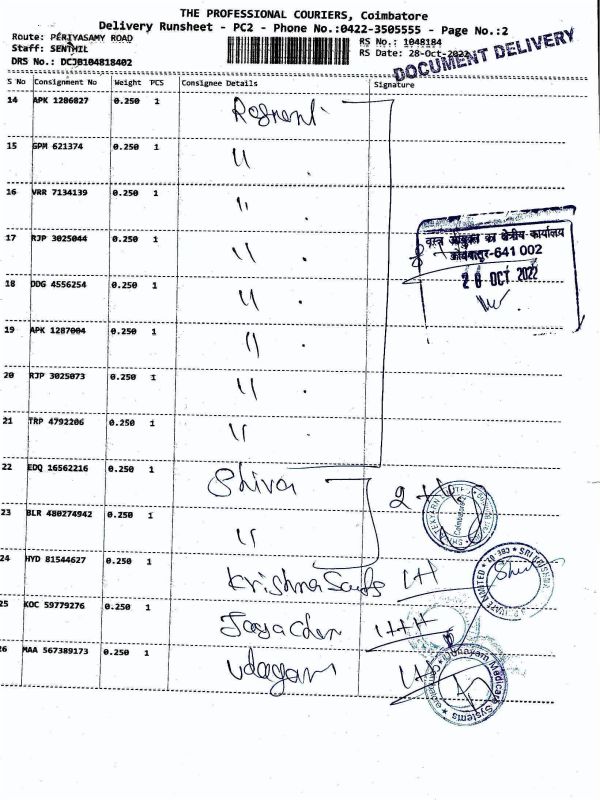 THE PROFESSIONAL COURIERS, Coimbatore
Delivery Runsheet - PC2 - Phone No.:0422-3505555 - Page No.:2
Route: PERIYASAMY ROAD
RS No.: 1048184
Staff: SENTHIL
RS Date: 28-Oct-2022
DRS No.: DCJB104818402
DOCUMENT DELIVERY
S No Consignment No Weight PCS Consignee Details Signature
14 APK 1286827 0.250 1
15 GPM 621374 0.250 1 〃
16 VRR 7134139 0.250 1 〃
17 RJP 3025044 0.250 1 〃
वस्त्र आयुक्त का क्षेत्रीय-कार्यालय
कोयंबत्तूर-641 002
28 OCT 2022
18 DDG 4556254 0.250 1 〃
19 APK 1287004 0.250 1 〃
20 RJP 3025073 0.250 1 〃
21 TRP 4792206 0.250 1 〃
22 EDQ 16562216 0.250 1 Shiva
23 BLR 480274942 0.250 1 〃
Coimbatore
24 HYD 81544627 0.250 1 Krishna
25 KOC 59779276 0.250 1
26 MAA 567389173 0.250 1 Udayam
Udayam Medicare Systems